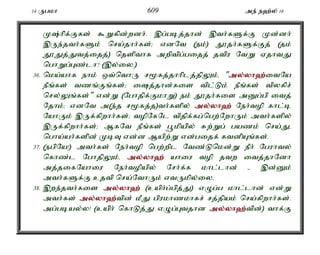 14 ருபமா 609 அந் நஹ்ல் 16
முஷ்ரிக்குகள் கூறுகின்றனர். இப்படித்தான் இவர்களுக்கு முன்னர்
இருந்தவர்களும் செய்தார்கள்; எனவே (நம்) தூதர்களுக்குத் (தம்
தூதுத்துவத்தைத்) தெளிவாக அறிவிப்பதைத் தவிர வேறு ஏதாவது
பொறுப்புண்டா? (இல்லை.)
36. மெய்யாக நாம் ஒவ்வொரு சமூகத்தாரிடத்திலும், "அல்லாஹ்வையே
நீங்கள் வணங்குங்கள்; ஷைத்தான்களை விட்டும் நீங்கள் விலகிச்
செல்லுங்கள்" என்று (போதிக்குமாறு) நம் தூதர்களை அனுப்பி வைத்
தோம்; எனவே அ(ந்த சமூகத்த)வர்களில் அல்லாஹ் நேர்வழி காட்டி
யோரும் இருக்கிறார்கள்; வழிகேடே விதிக்கப்பெற்றோரும் அவர்களில்
இருக்கிறார்கள்; ஆகவே நீங்கள் பூமியில் சுற்றுப் பயணம் செய்து,
பொய்யர்களின் முடிவு என்ன ஆயிற்று என்பதைக் கவனியுங்கள்.
37. (நபியே!) அவர்கள் நேர்வழி பெற்றிட வேண்டுமென்று நீர் பேராவல்
கொண்ட போதிலும், அல்லாஹ் யாரை வழி தவற வைத்தானோ
அத்தகையோரை நேர்வழியில் சேர்க்க மாட்டான் - இன்னும்
அவர்களுக்கு உதவி செய்வோரும் எவருமில்லை.
38. இறந்தவர்களை அல்லாஹ் (உயிர்ப்பித்து) எழுப்ப மாட்டான் என்று
அவர்கள் அல்லாஹ்வின் மீது பிரமாணமாகச் சத்தியம் செய்கிறார்கள்.
அப்படியல்ல! (உயிர் கொடுத்து எழுப்புவதான அல்லாஹ்வின்) வாக்கு